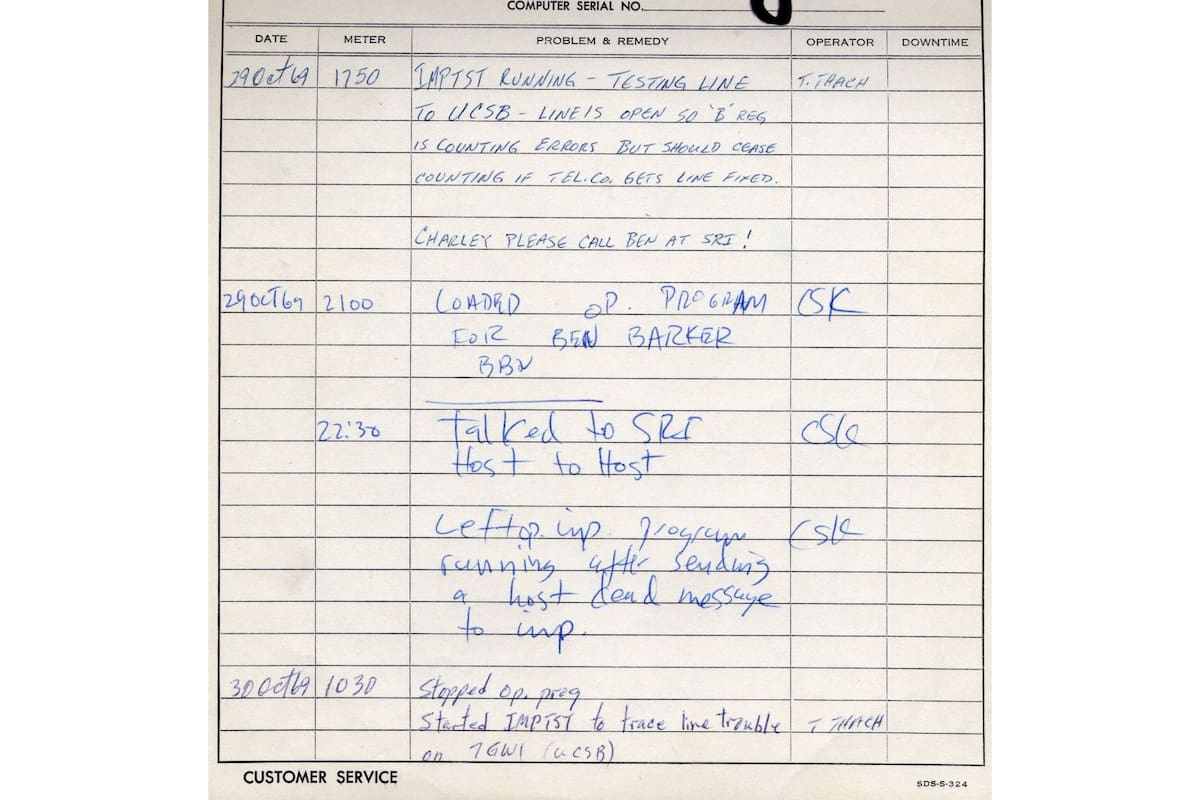 COMPUTER SERIAL NO.
DATE METER PROBLEM & REMEDY OPERATOR DOWNTIME
29Oct69 1750 IMPTST RUNNING – TESTING LINE T. THACH
TO UCSB – LINE IS OPEN SO 'B' REG
IS COUNTING ERRORS BUT SHOULD CEASE
COUNTING IF TEL.CO. GETS LINE FIXED.
CHARLEY PLEASE CALL BEN AT SRI!
29OCT69 2100 LOADED OP. PROGRAM CSK
FOR BEN BARKER
BBN
22:30 Talked to SRI CSK
Host to Host
Left op. imp. program CSK
running after sending
a host dead message
to imp.
30Oct69 1030 Stopped op. prog
Started IMPTST to trace line trouble T THACH
on (UCSB)
CUSTOMER SERVICE
SDS-S-324